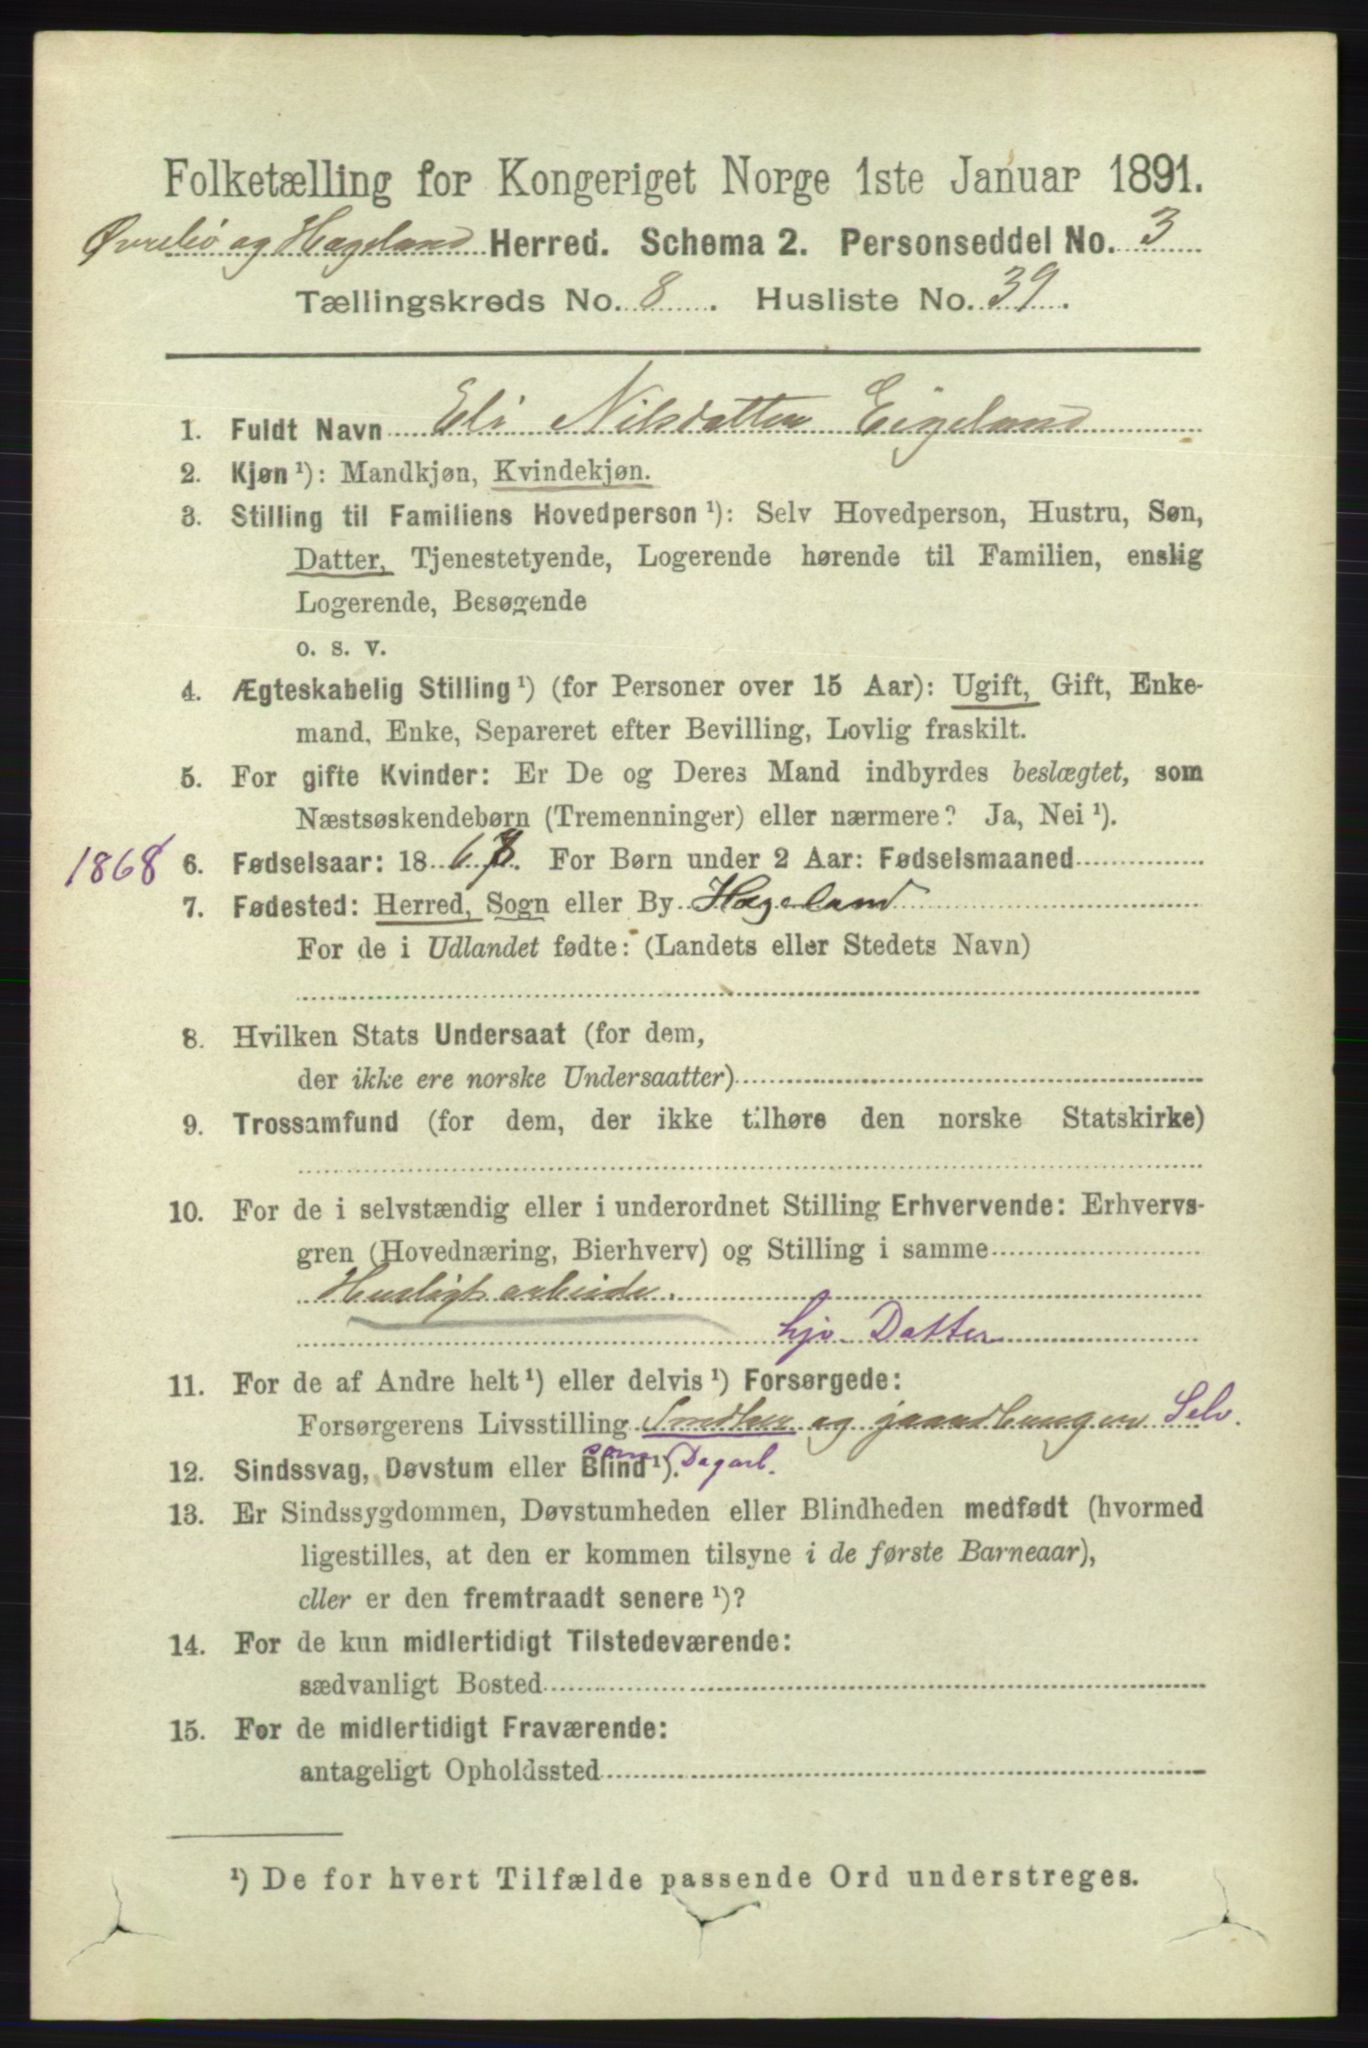 Folketælling for Kongeriget Norge 1ste Januar 1891.
Øvrebø og Hægeland Herred. Schema 2. Personseddel No. 3
Tællingskreds No. 8. Husliste No. 39.
1. Fuldt Navn Eli Nilsdatter Eigeland
2. Kjøn ¹): Mandkjøn, Kvindekjøn.
3. Stilling til Familiens Hovedperson ¹): Selv Hovedperson, Hustru, Søn,
Datter, Tjenestetyende, Logerende hørende til Familien, enslig
Logerende, Besøgende
o. s. v.
4. Ægteskabelig Stilling ¹) (for Personer over 15 Aar): Ugift, Gift, Enke-
mand, Enke, Separeret efter Bevilling, Lovlig fraskilt.
5. For gifte Kvinder: Er De og Deres Mand indbyrdes beslægtet, som
Næstsøskendebørn (Tremenninger) eller nærmere? Ja, Nei ¹).
1868 6. Fødselsaar: 1868. For Børn under 2 Aar: Fødselsmaaned
7. Fødested: Herred, Sogn eller By Hægeland
For de i Udlandet fødte: (Landets eller Stedets Navn)
8. Hvilken Stats Undersaat (for dem,
der ikke ere norske Undersaatter)
9. Trossamfund (for dem, der ikke tilhøre den norske Statskirke)
10. For de i selvstændig eller i underordnet Stilling Erhvervende: Erhvervs-
gren (Hovednæring, Bierhverv) og Stilling i samme
Huusligt arbeide.
hjv. Datter
11. For de af Andre helt ¹) eller delvis ¹) Forsørgede:
Forsørgerens Livsstilling og Selv.
12. Sindssvag, Døvstum eller Blind ¹). som Dagarb.
13. Er Sindssygdommen, Døvstumheden eller Blindheden medfødt (hvormed
ligestilles, at den er kommen tilsyne i de første Barneaar),
eller er den fremtraadt senere ¹)?
14. For de kun midlertidigt Tilstedeværende:
sædvanligt Bosted
15. For de midlertidigt Fraværende:
antageligt Opholdssted
¹) De for hvert Tilfælde passende Ord understreges.